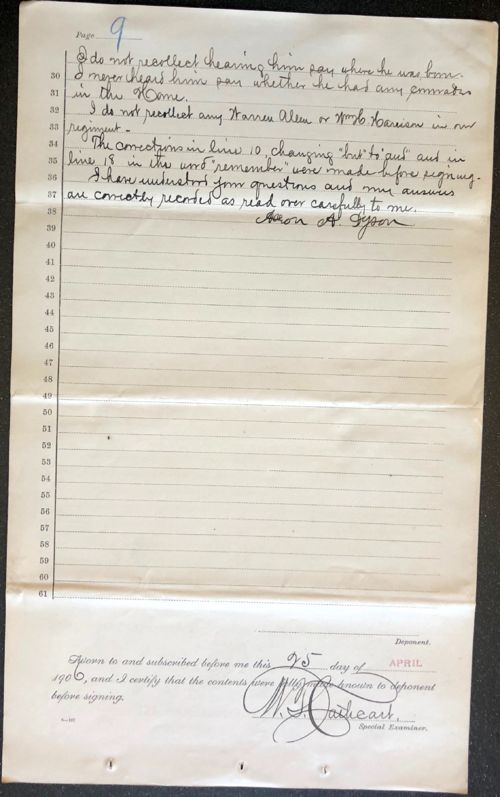 Page 9
I do not recollect hearing him say where he was born.
30 I never heard him say whether he had any comrades
31 in the Home.
32 I do not recollect any Warren Aleen or Wm H. Harrison in our
33 regiment.
34 The corrections in line 10, changing "but" to "and" and in
35 line 18 in the word "remember" were made before signing.
36 I have understood your questions and my answers
37 are correctly recorded as read over carefully to me.
38 Aaron A. Dyson
39
40
41
42
43
44
45
46
47
48
49
50
51
52
53
54
55
56
57
58
59
60
61
Deponent.
Sworn to and subscribed before me this 25 day of APRIL
1906, and I certify that the contents were fully made known to deponent
before signing.
Cathcart.
Special Examiner.